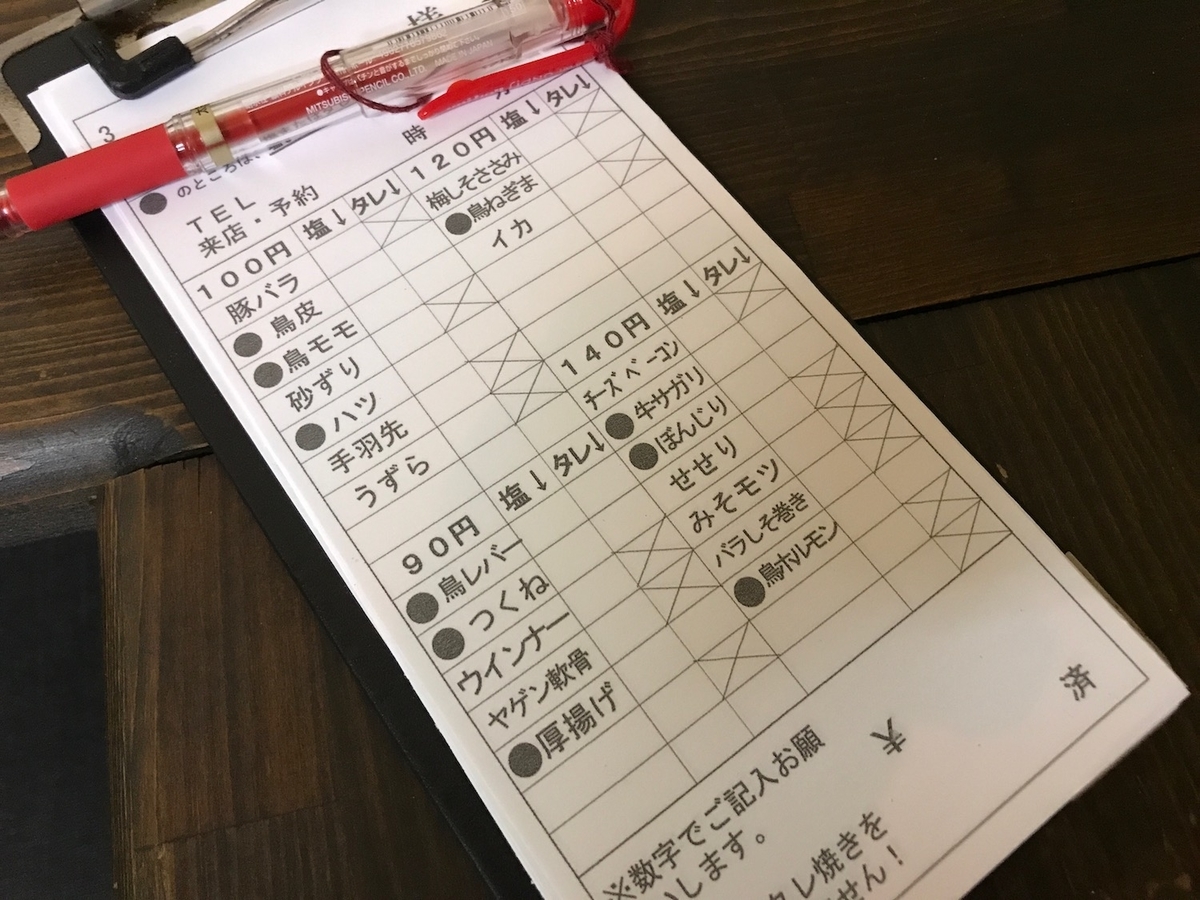 様
MADE IN JAPAN
MITSUBISHI PENCIL CO.,LTD
3
時
●のところは、
TEL
来店・予約
100円 塩↓ タレ↓
豚バラ
●鳥皮
●鳥モモ
砂ずり
●ハツ
手羽先
うずら
90円 塩↓ タレ↓
●鳥レバー
●つくね
ウインナー
ヤゲン軟骨
●厚揚げ
120円 塩↓ タレ↓
梅しそささみ
●鳥ねぎま
イカ
140円 塩↓ タレ↓
チーズベーコン
●牛サガリ
●ぼんじり
せせり
みそモツ
バラしそ巻き
●鳥ホルモン
済
※数字でご記入お願
いします。
タレ焼きを
せん!